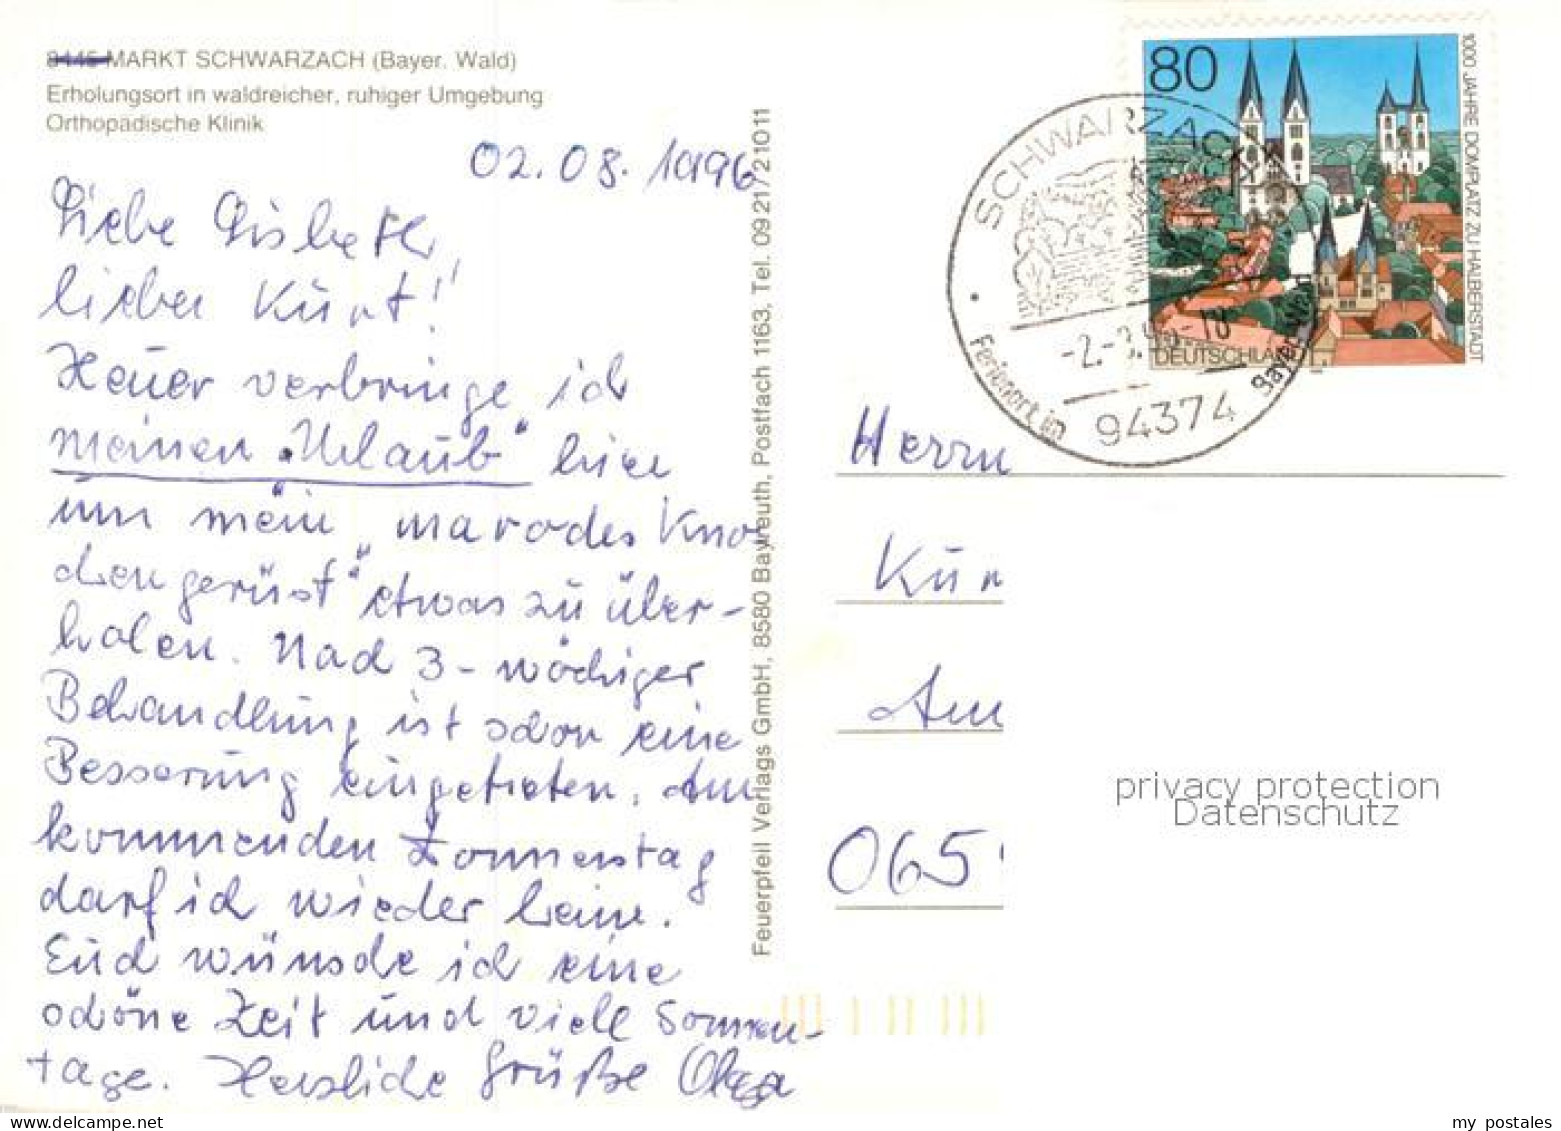 8445 MARKT SCHWARZACH (Bayer. Wald)
Erholungsort in waldreicher, ruhiger Umgebung
Orthopädische Klinik
02.08.1996
Liebe Lisbeth,
lieber Kurt!
Heuer verbringe ich
meinen „Urlaub" hier
um mein „marodes Kno
chengerüst" etwas zu über-
holen. Nach 3-wöchiger
Behandlung ist schon eine
Besserung eingetreten. Am
kommenden Donnerstag
darf ich wieder heim.
Euch wünsche ich eine
schöne Zeit und viele Sonnen-
tage. Herzliche Grüße Olga
Feuerpfeil Verlags GmbH, 8580 Bayreuth, Postfach 1163, Tel. 09 21/2 10 11
80
1000 JAHRE DOMPLATZ ZU HALBERSTADT
DEUTSCHLAND
SCHWARZACH
94374
Ferienort im Bayer. Wald
Herrn
Kur
Am
065
privacy protection
Datenschutz
my postales